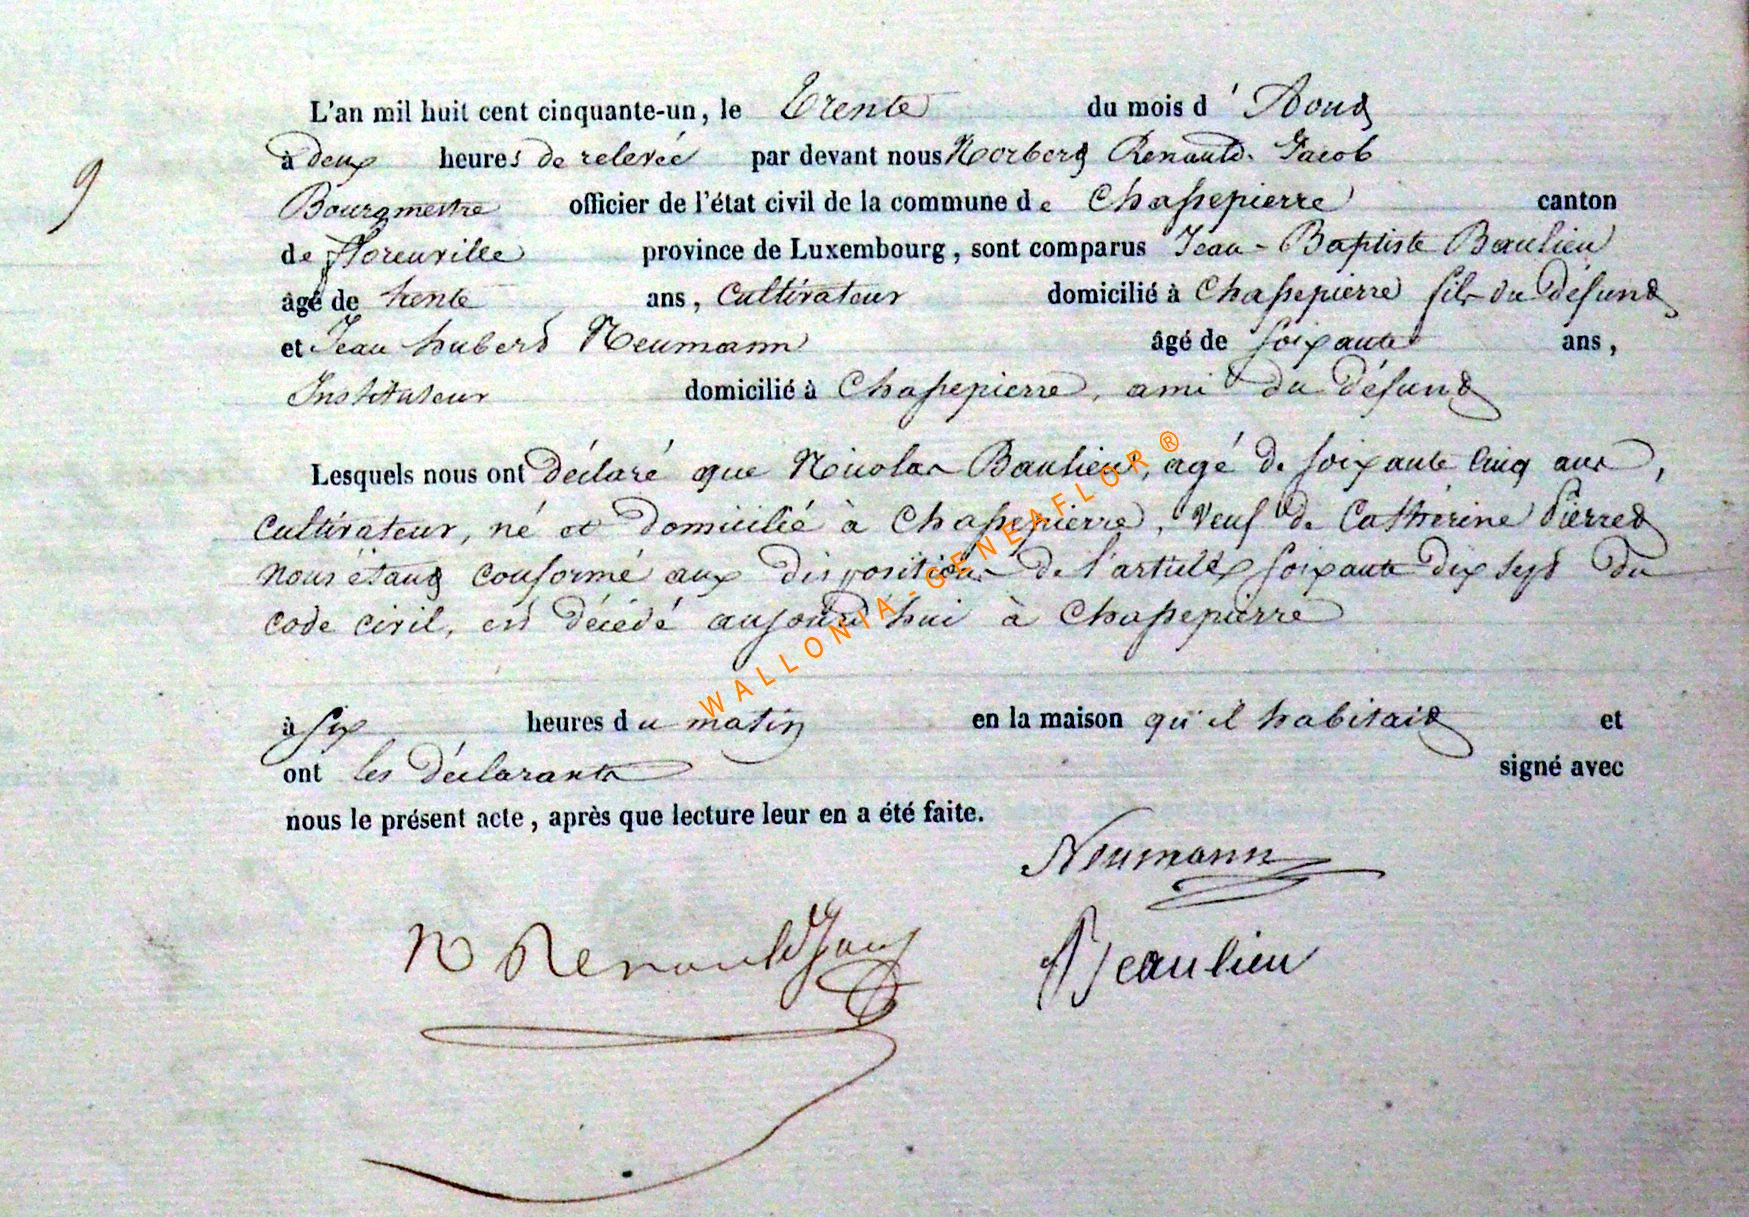 L'an mil huit cent cinquante-un, le trente du mois d'Aout
à deux heures de relevée par devant nous Norbert Renauld. Jacob
9
Bourgmestre officier de l'état civil de la commune de Chassepierre canton
de florenville province de Luxembourg, sont comparus Jean-Baptiste Beaulieu
âgé de trente ans, Cultivateur domicilié à Chassepierre fils du défunt
et Jean hubert Neumann âgé de soixante ans,
Instituteur domicilié à Chassepierre, ami du défunt
Lesquels nous ont déclaré que Nicolas Baulieu, agé de soixante cinq ans,
cultivateur, né et domicilié à Chassepierre, veuf de Cathérine Pierret
nous étant conformé aux dispositions de l'article soixante dix sept du
code civil, est décédé aujourd'hui à Chassepierre
WALLONIA-GENEAFLOR ®
à six heures du matin en la maison qu'il habitait et
ont les déclarants signé avec
nous le présent acte, après que lecture leur en a été faite.
Neumann
N Renauld Jacob
Beaulieu